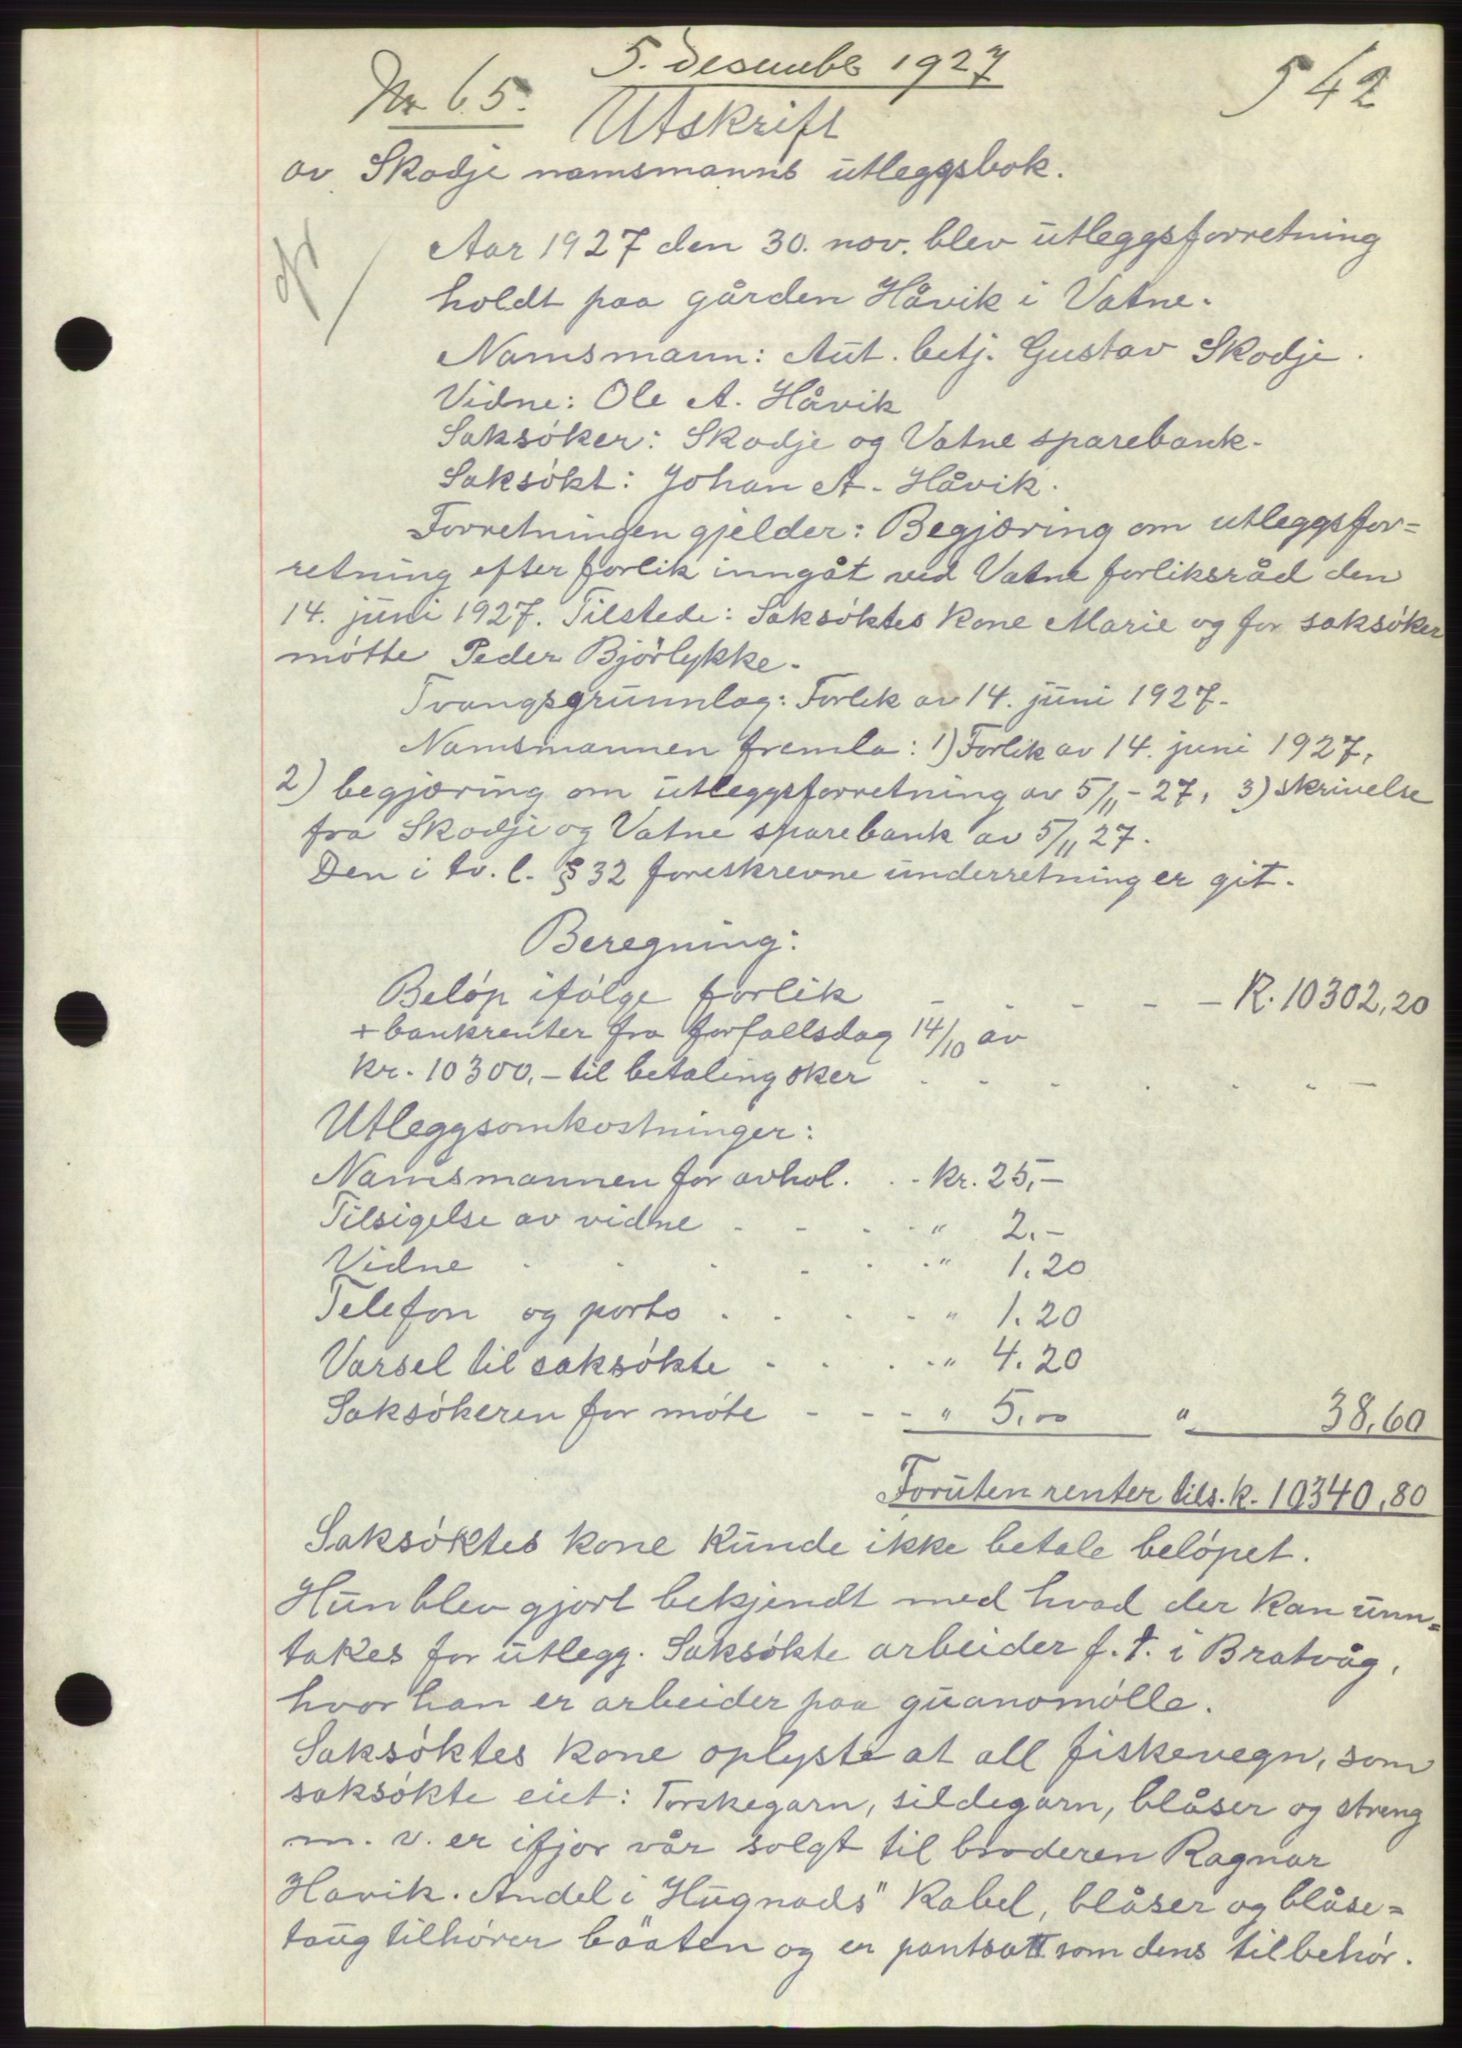 5. desember 1927
Nr 65. 542
Utskrift
av Skodje namsmanns utleggsbok.
Aar 1927 den 30. nov. blev utleggsforretning
holdt paa gården Håvik i Vatne.
Namsmann: Aut. betj. Gustav Skodje.
Vidne: Ole A. Håvik
Saksøker: Skodje og Vatne sparebank.
Saksøkt: Johan A. Håvik.
Forretningen gjelder: Begjæring om utleggsfor=
retning efter forlik inngåt ved Vatne forliksråd den
14. juni 1927. Tilstede: Saksøktes kone Marie og for saksøker
møtte Peder Bjørlykke.
Tvangsgrunnlag: Forlik av 14. juni 1927.
Namsmannen fremla: 1) Forlik av 14. juni 1927,
2) begjæring om utleggsforretning av 5/11-27, 3) skrivelse
fra Skodje og Vatne sparebank av 5/11 27.
Den i tv. l. § 32 foreskrevne underretning er git.
Beregning:
Beløp ifølge forlik - - - - - K. 10302,20
+ bankrenter fra forfallsdag 14/10 av
kr. 10300,- til betaling sker . . . . . . -
Utleggsomkostninger:
Namsmannen for avhol. . . kr. 25,-
Tilsigelse av vidne . . . . " 2.-
Vidne . . . . . . " 1.20
Telefon og porto . . . . " 1.20
Varsel til saksøkte . . . . " 4.20
Saksøkeren for møte - - - " 5,00 " 38,60
Foruten renter tils. k. 10340,80
Saksøktes kone kunde ikke betale beløpet.
Hun blev gjort bekjendt med hvad der kan unn=
takes for utlegg. Saksøkte arbeider f. t. i Bratvåg,
hvor han er arbeider paa guanomølle.
Saksøktes kone oplyste at all fiskevegn, som
saksøkte eiet: Torskegarn, sildegarn, blåser og streng
m. v. er ifjor vår solgt til broderen Ragnar
Havik. Andel i "Hugnads" kabel, blåser og blåse=
taug tilhører båaten og er pantsatt som dens tilbehør.